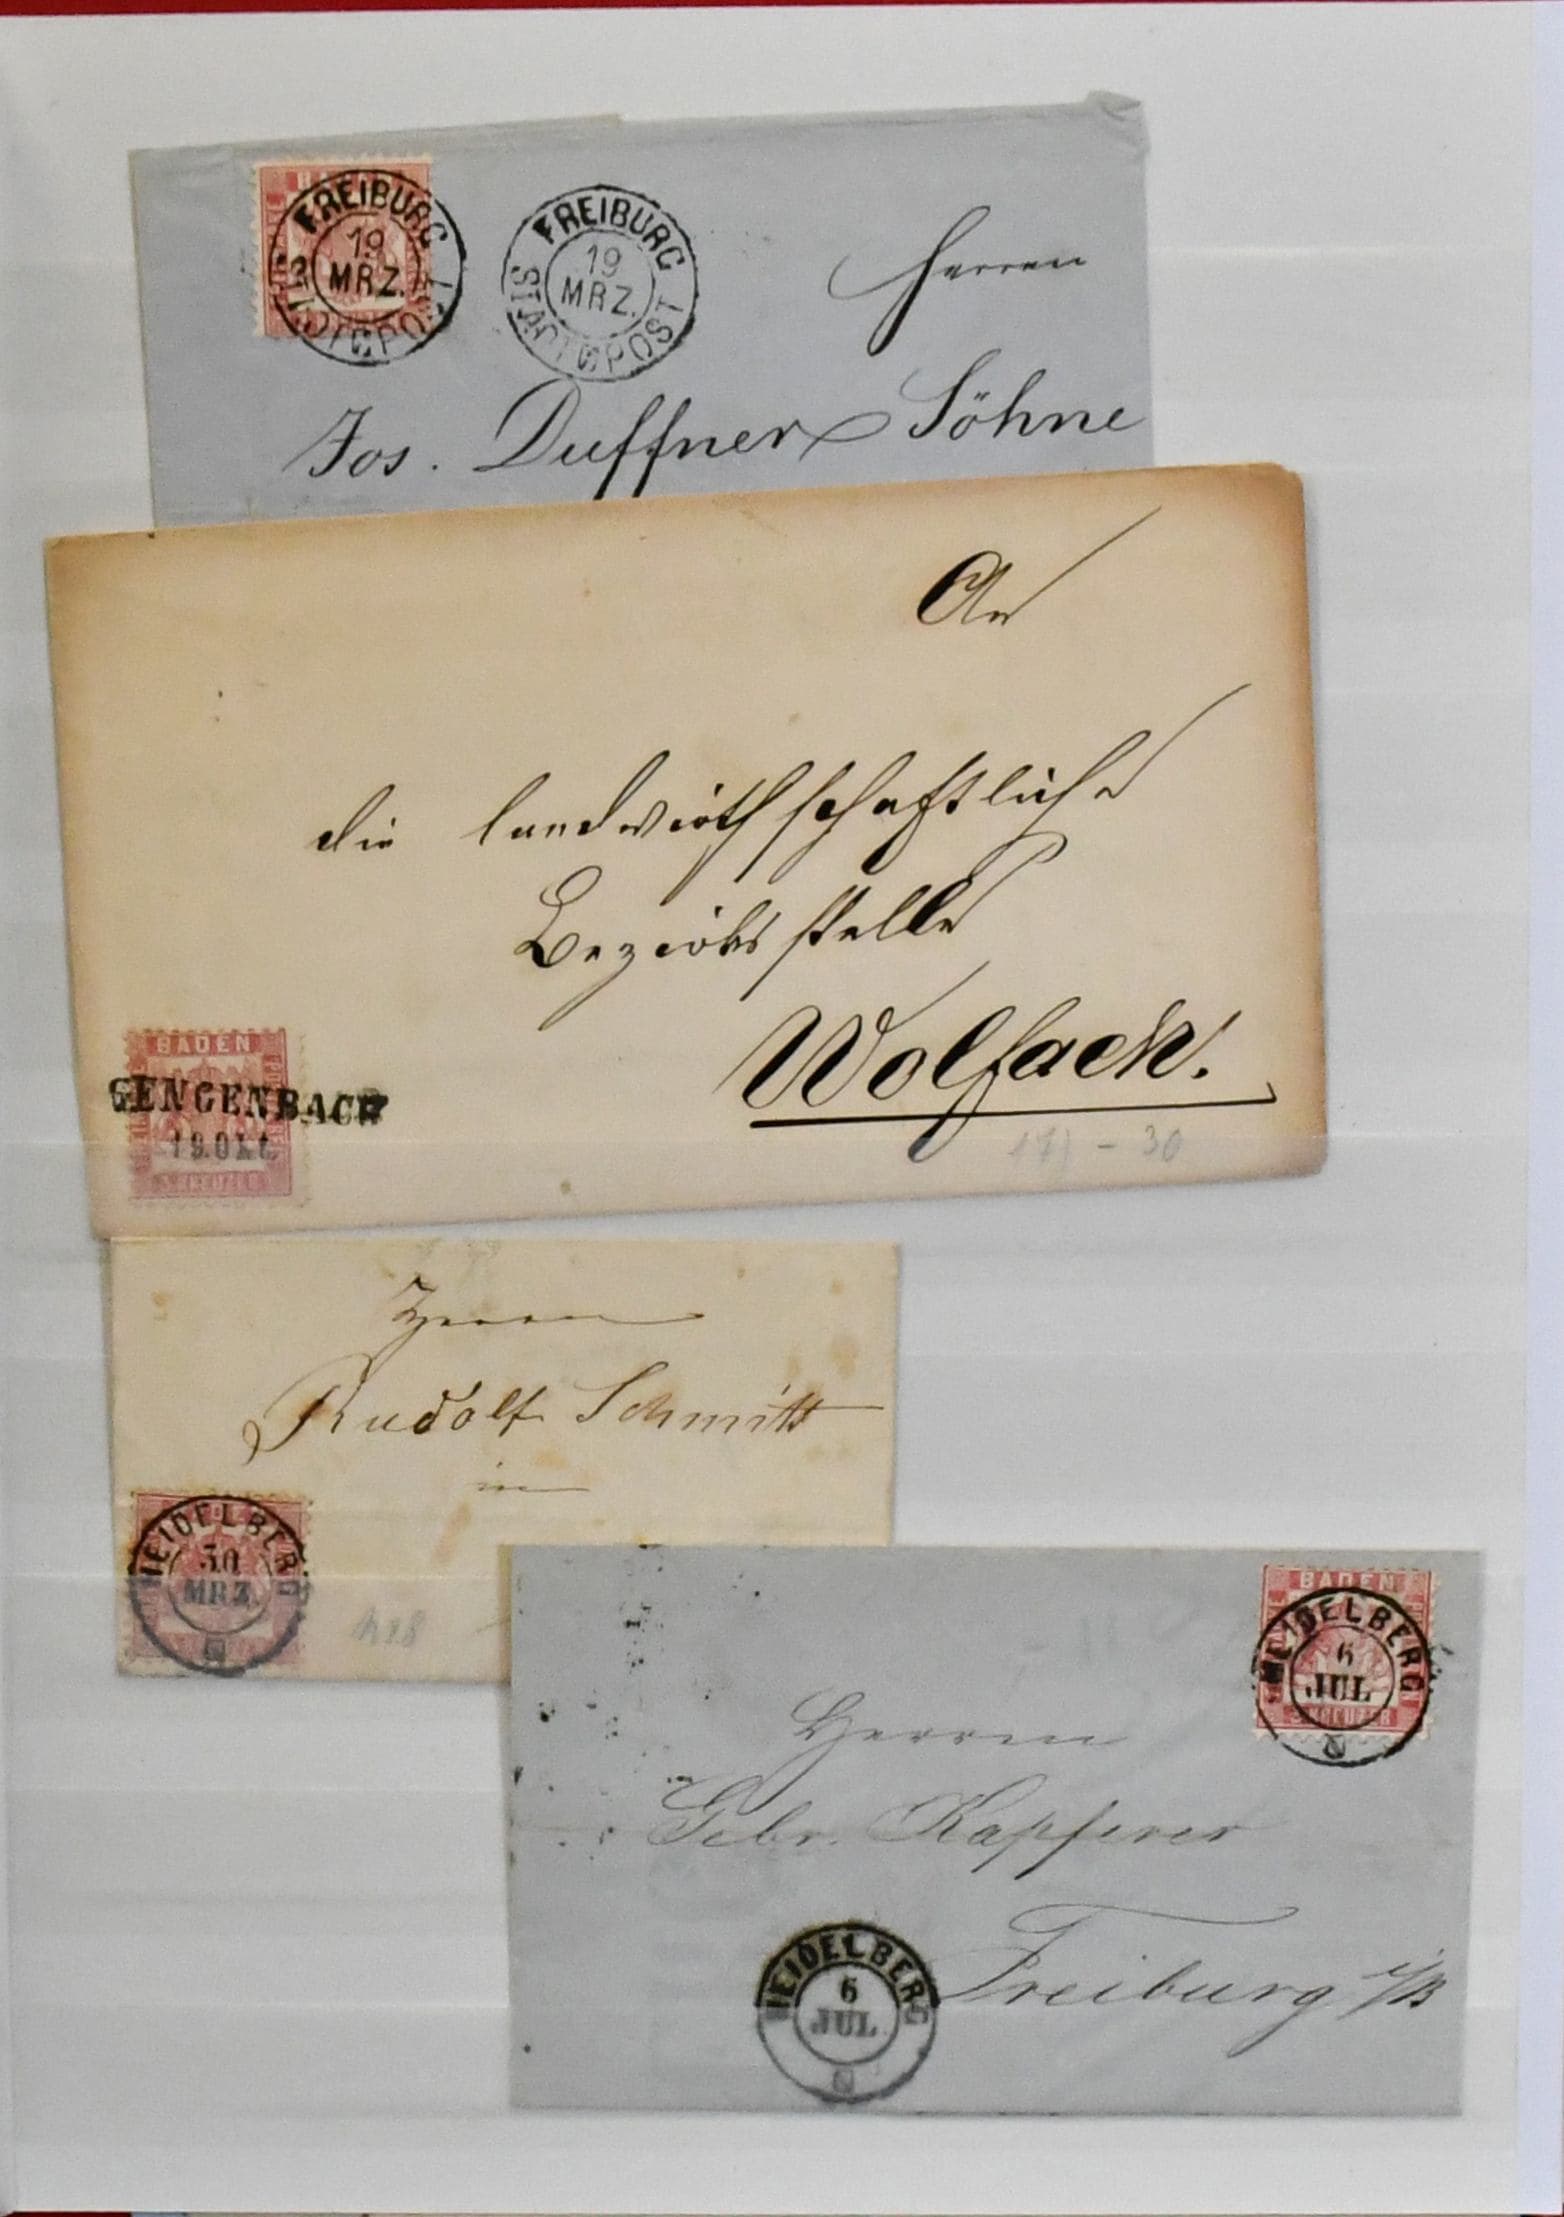 FREIBURG
19
MRZ.
STADTPOST
FREIBURG
19
MRZ.
STADTPOST
Herren
Jos. Duffner Söhne
An
die landwirthschaftliche
Bezirksstelle
Wolfach.
BADEN
GENGENBACH
19.Okt.
3 KREUZER
- 30
Herrn
Rudolf Schmitt
in
HEIDELBERG
30
MRZ.
BADEN
HEIDELBERG
6
JUL
3 KREUZER
Herren
Gebr. Kapferer
Freiburg i/B
HEIDELBERG
6
JUL